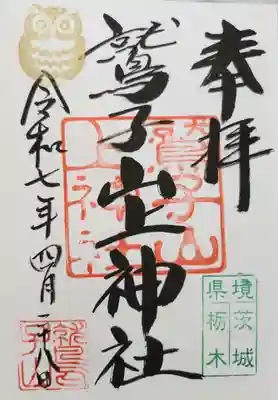 奉拝
鷲子山上神社
鷲子山
上神社
令和七年四月二十八日
県境
茨城
栃木